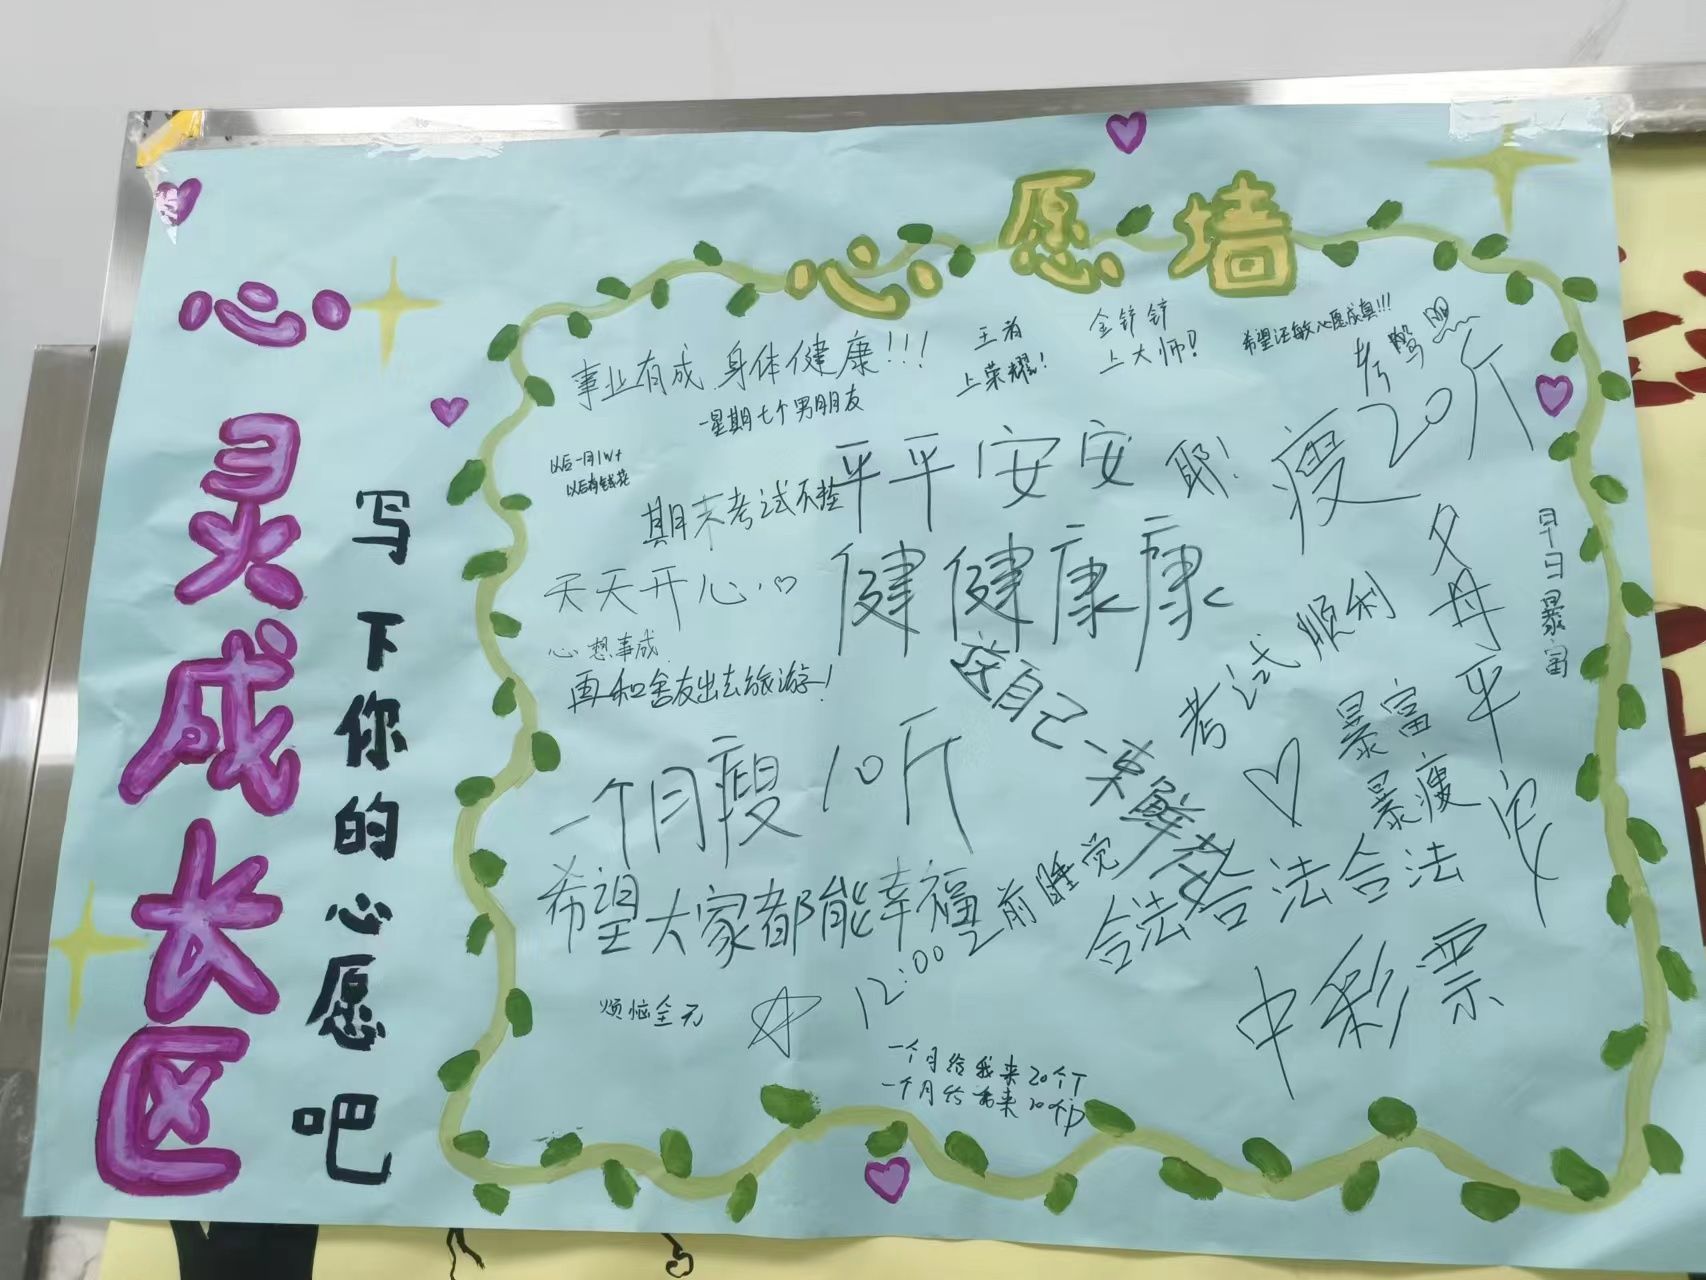 心灵成长区
写下你的心愿吧
心愿墙
事业有成 身体健康!!!
一星期七个男朋友
王者
上荣耀!
金铲铲
上大师!
希望还敏心愿成真!!!
以后一月1W+
以后有钱花
期末考试不挂
平平安安
耶!
瘦20斤
健健康康
天天开心
心想事成
再和舍友出去旅游!
送自己一束鲜花
考试顺利
父母平安
早日暴富
暴富
暴瘦
一个月瘦10斤
希望大家都能幸福
12:00之前睡觉
合法合法合法
中彩票
烦恼全无
一个月给我来20个T
一个月给我来20个